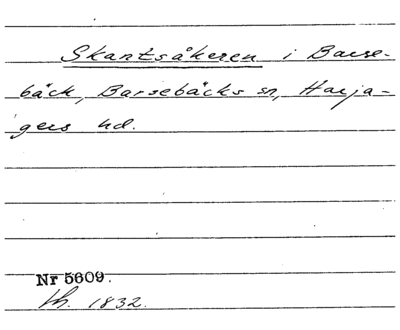 Skantsåkeren i Barse-
bäck, Barsebäcks sn, Harja-
gers hd.
Nr 5609.
th. 1832.